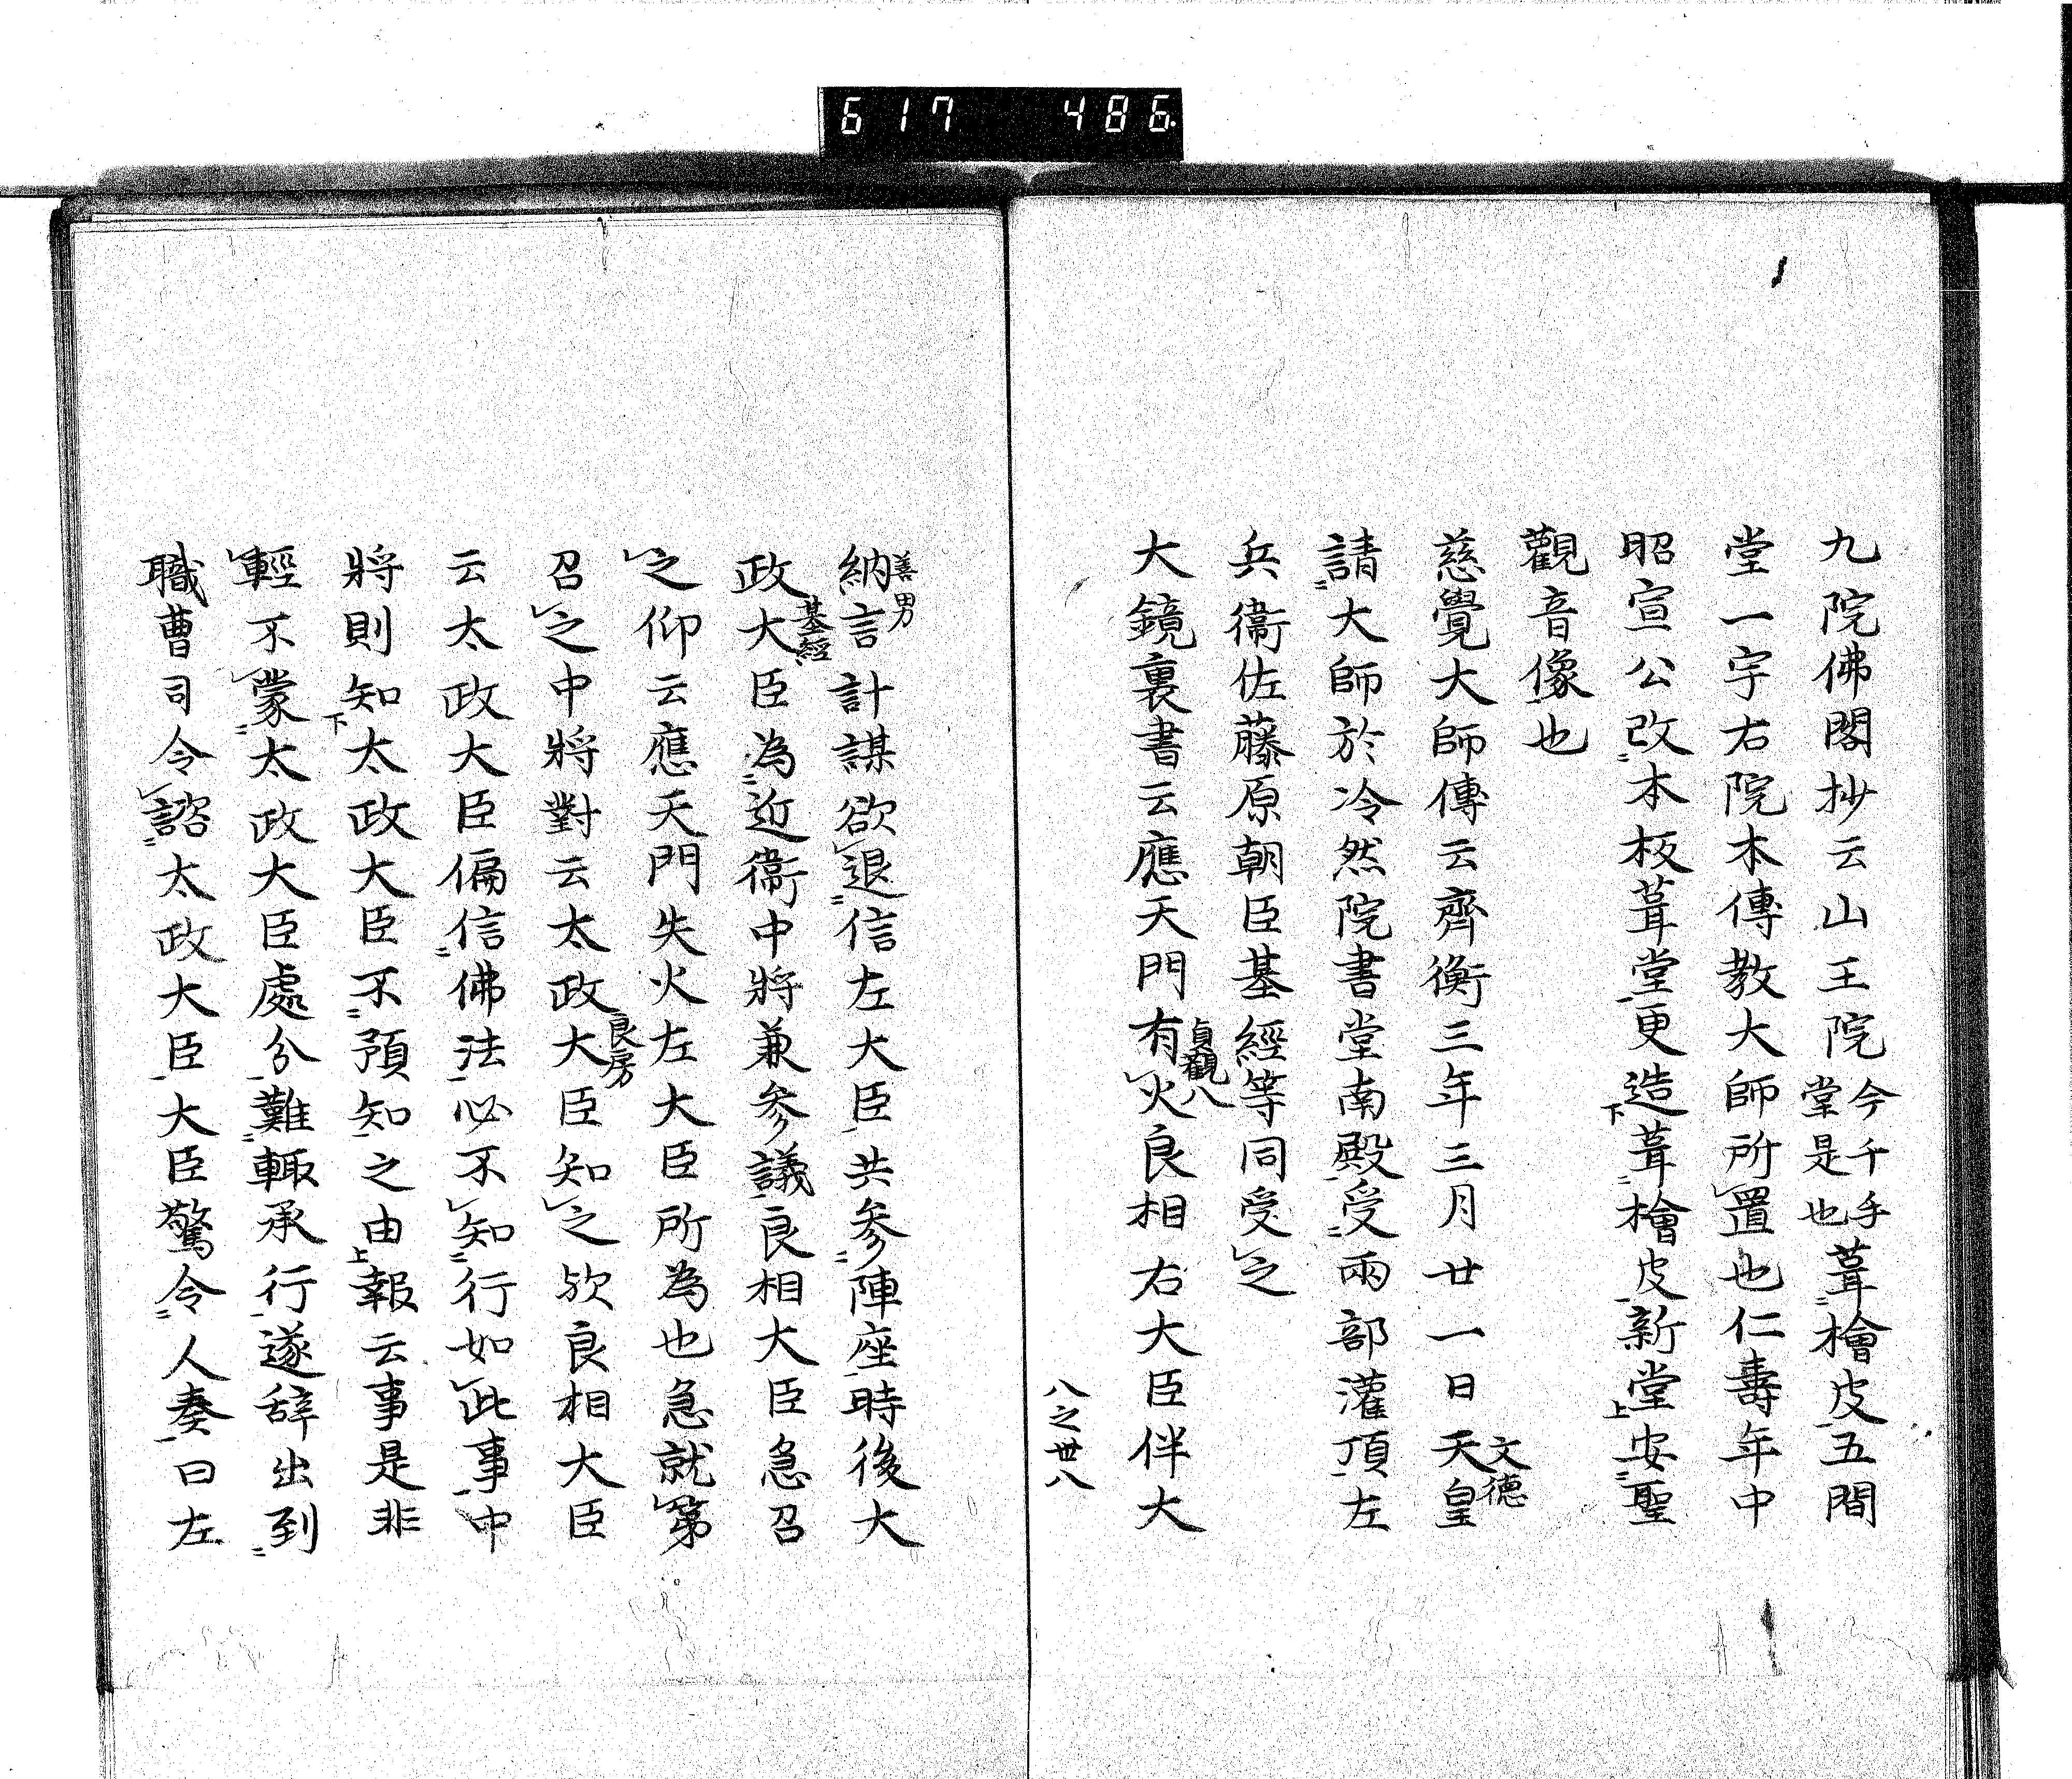 617 486
九院佛閣抄云山王院今千手堂是也葺檜皮五間
堂一宇右院本傳教大師所置也仁壽年中
昭宣公改本板葺堂更造葺檜皮新堂安聖
觀音像也
慈覺大師傳云齊衡三年三月廿一日天皇文德
請大師於冷然院書堂南殿受兩部灌頂左
兵衞佐藤原朝臣基經等同受之
大鏡裏書云應天門有火貞觀八良相右大臣伴大
八之卅八
納言善男計謀欲退信左大臣共參陣座時後大
政大臣基經為近衞中將兼參議良相大臣急召
之仰云應天門失火左大臣所為也急就第
召之中將對云太政大臣良房知之歟良相大臣
云太政大臣偏信佛法必不知行如此事中
將則知太政大臣不預知之由報云事是非
輕不蒙太政大臣處分難輙承行遂辞出到
職曹司令諮太政大臣大臣驚令人奏曰左